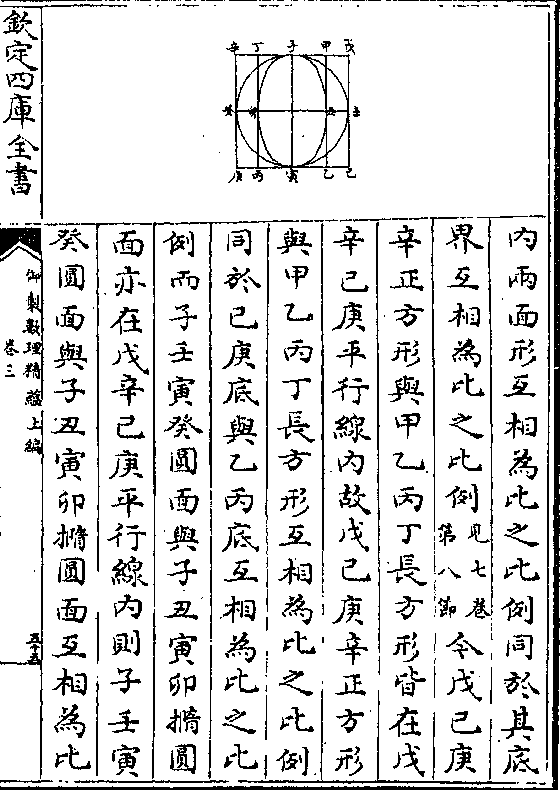 戊甲子丁辛
壬丑卯癸
己乙寅丙庚
内兩面形互相為比之比例同於其底
界互相為比之比例見七卷第八節今戊己庚
辛正方形與甲乙丙丁長方形皆在戊
辛己庚平行線内故戊己庚辛正方形
與甲乙丙丁長方形互相為比之比例
同於己庚底與乙丙底互相為比之比
例而子壬寅癸圓面與子丑寅卯撱圓
面亦在戊辛己庚平行線内則子壬寅
癸圓面與子丑寅卯撱圓面互相為比
欽定四庫全書
御製數理精藴上編
卷三
五十五